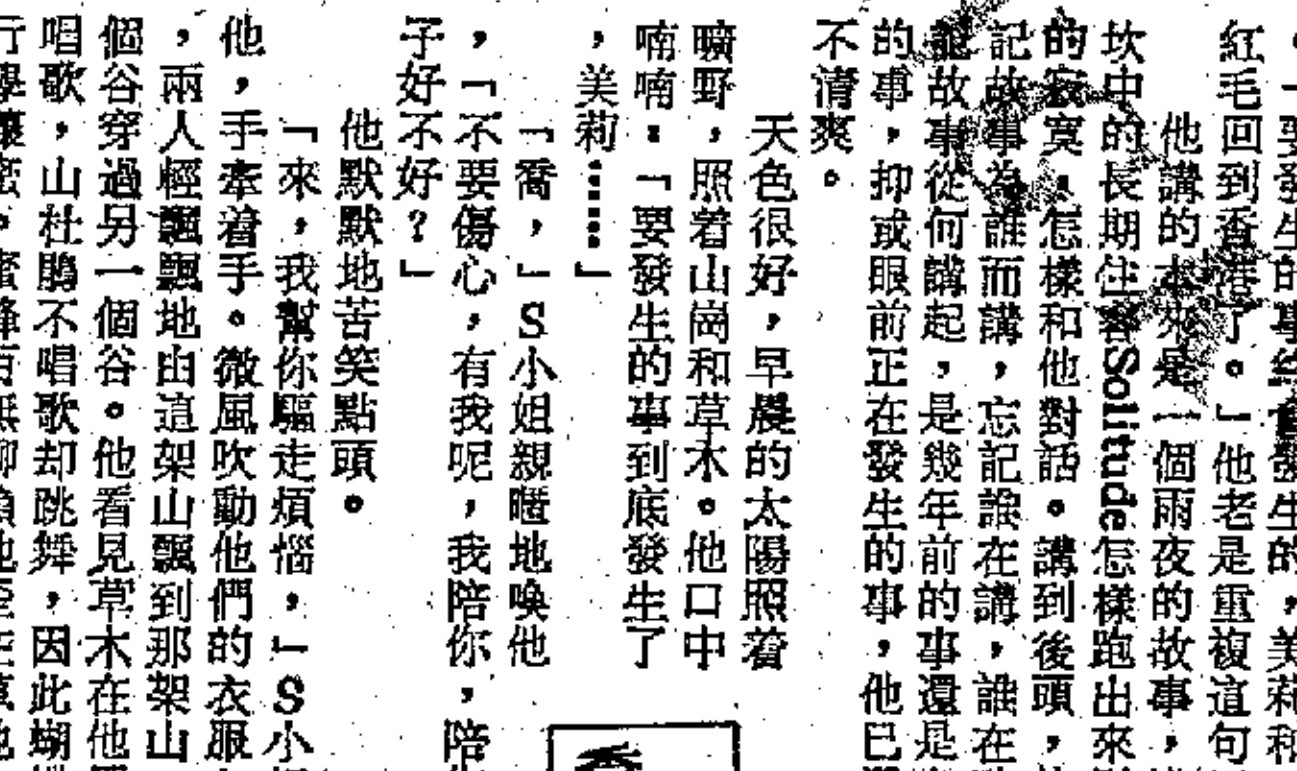 。「要發生的事終會發生的，美莉和
紅毛回到香港了。」他老是重複這句
他講的本來是一個雨夜的故事，
坎中的長期住客Solitude怎樣跑出來
的寂寞，怎樣和他對話。講到後頭，
記故事為誰而講，忘記誰在講，誰在
故事從何講起，是幾年前的事還是
的事，抑或眼前正在發生的事，他已
不清爽。
天色很好，早晨的太陽照着
曠野，照着山崗和草木。他口中
喃喃：「要發生的事到底發生了
，美莉……」
「喬，」S小姐親暱地喚他
，「不要傷心，有我呢，我陪你，陪
子好不好？」
他默默地苦笑點頭。
「來，我幫你驅走煩惱，」S小
他，手牽着手。微風吹動他們的衣服
，兩人輕飄飄地由這架山飄到那架山
個谷穿過另一個谷。他看見草木在他
唱歌，山杜鵑不唱歌却跳舞，因此蝴